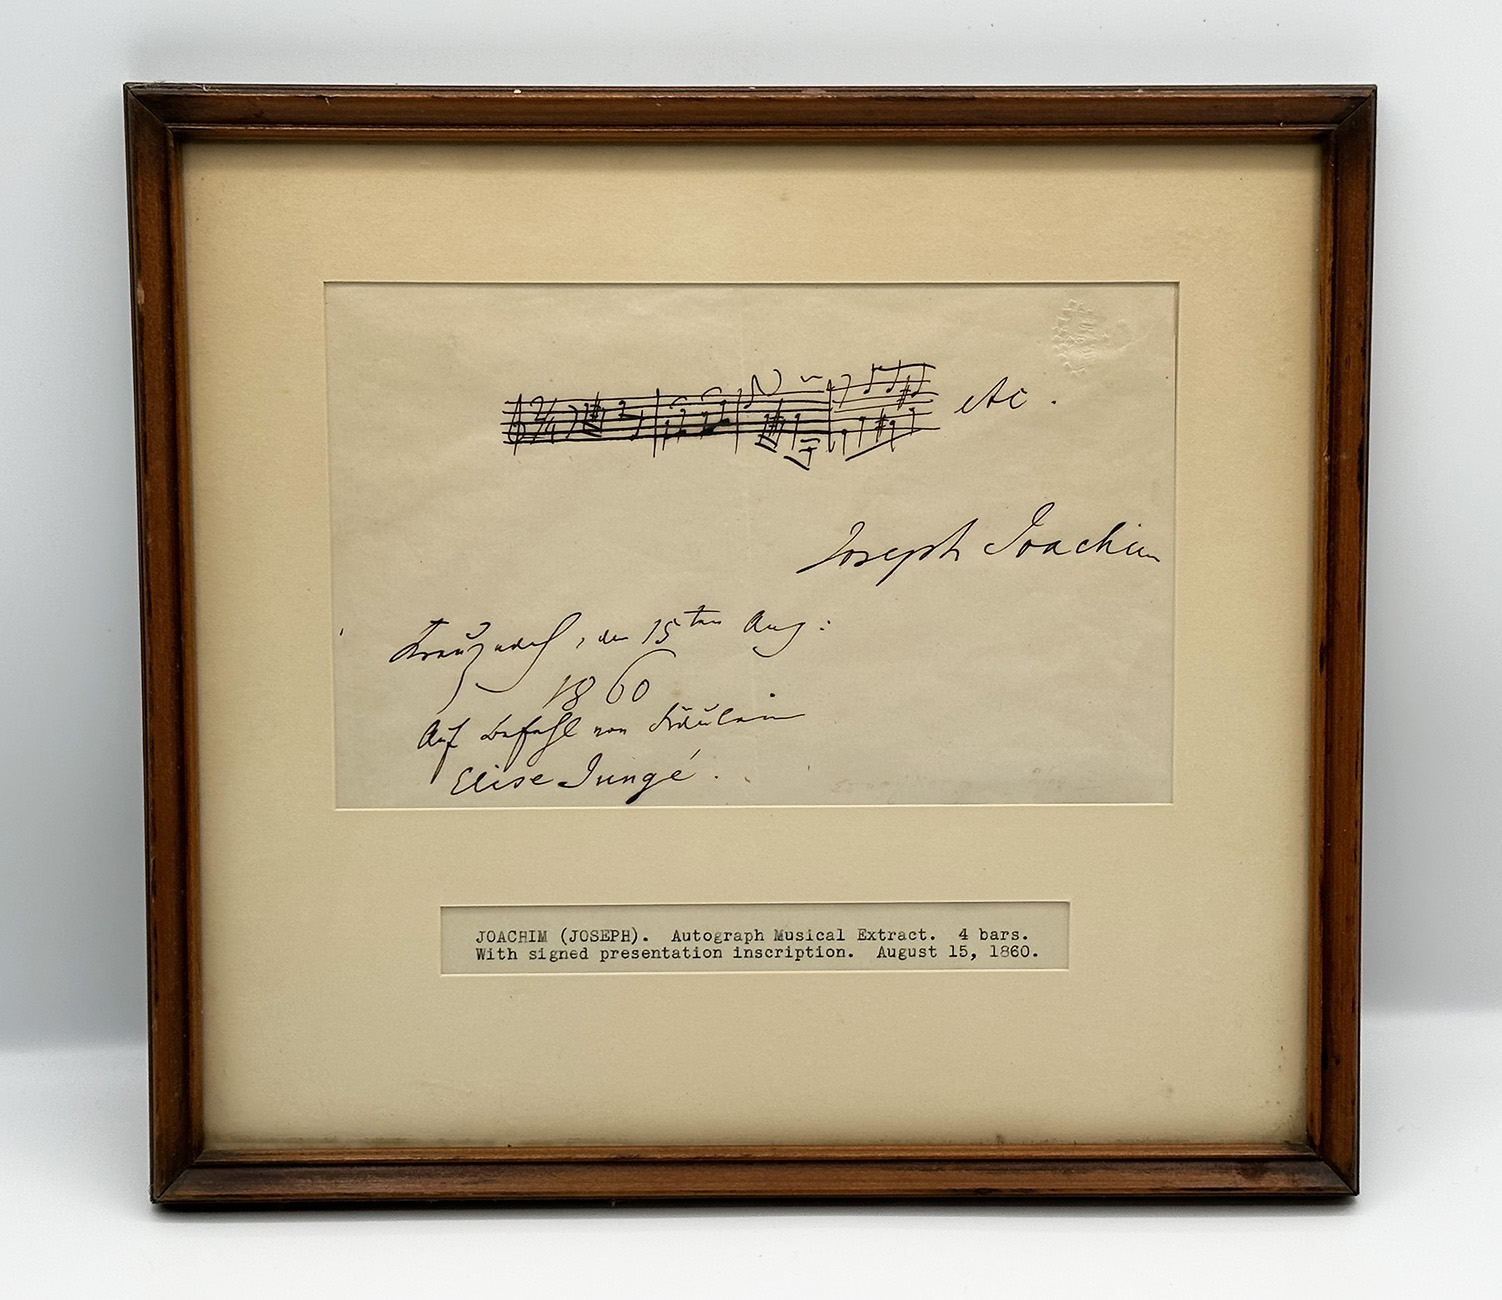 etc.
Joseph Joachim
Kreuznach, den 15ten Aug:
1860
Auf Befehl von Fräulein
Elise Jungé.
JOACHIM (JOSEPH). Autograph Musical Extract. 4 bars.
With signed presentation inscription. August 15, 1860.